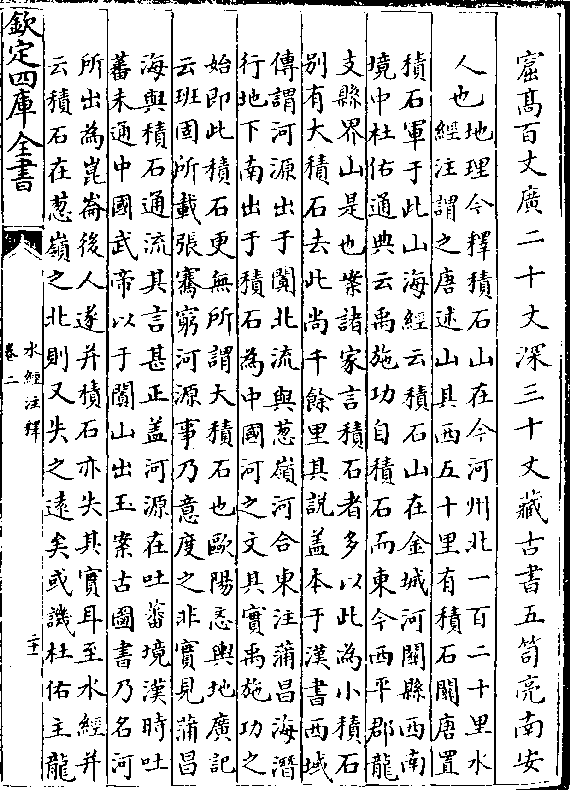 窟髙百丈廣二十丈深三十丈藏古書五笥亮南安
人也
地理今釋積石山在今河州北一百二十里水
經注謂之唐述山其西五十里有積石關唐置
積石軍于此山海經云積石山在金城河關縣西南
境中杜佑通典云禹施功自積石而東今西平郡龍
支縣界山是也案諸家言積石者多以此為小積石
别有大積石去此尚千餘里其說盖本于漢書西域
傳謂河源出于闐北流與葱嶺河合東注蒲昌海潛
行地下南出于積石為中國河之文其實禹施功之
始即此積石更無所謂大積石也歐陽忞輿地廣記
云班固所載張騫窮河源事乃意度之非實見蒲昌
海與積石通流其言甚正盖河源在吐蕃境漢時吐
蕃未通中國武帝以于闐山出玉案古圖書乃名河
所出為崑崙後人遂并積石亦失其實耳至水經并
云積石在葱嶺之北則又失之遠矣或譏杜佑主龍
欽定四庫全書
水經注釋
卷二
二十一